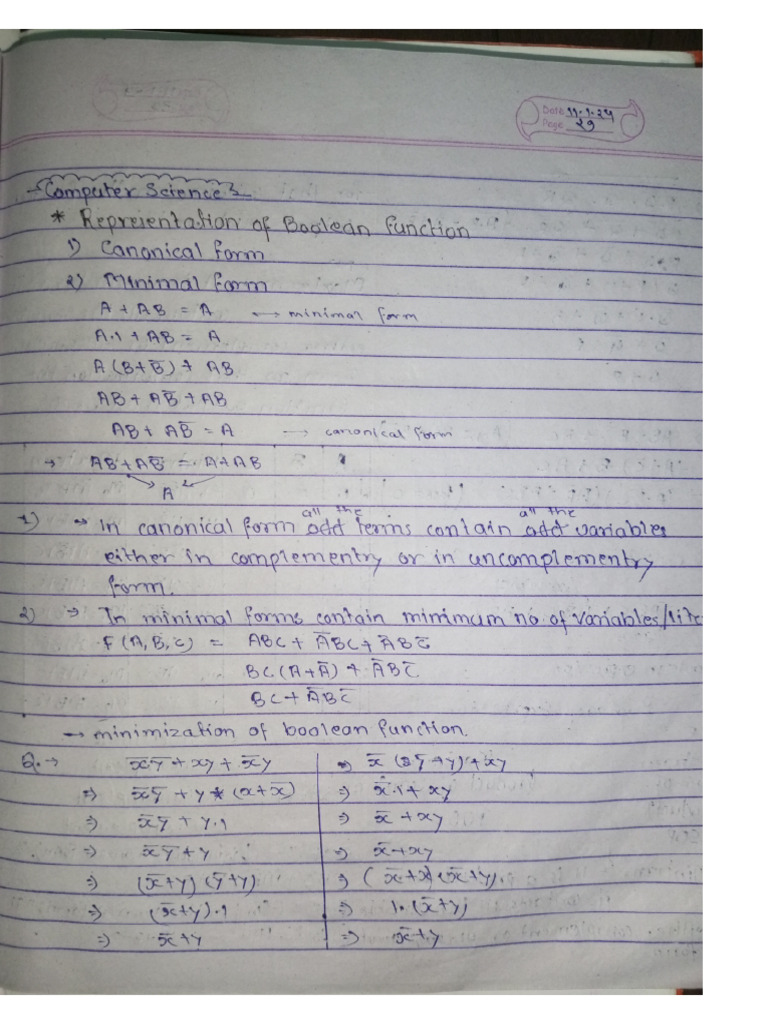 Date 11.1.24
Page 29
Computer Science
* Represientation of Boolean function
1) Canonical form
2) Minimal form
A + AB = A → minimal form
A.1 + AB = A
A (B+B̅) + AB
AB + AB̅ + AB
AB + AB̅ = A → canonical form
→ AB+AB̅ = A+AB
A
1) → In canonical form all the odd terms contain all the odd variables
either in complementry or in uncomplementry
form.
2) → In minimal forms contain minimum no. of variables/lite
F (A,B,C) = ABC + A̅BC + A̅BC̅
BC(A+A̅) + A̅BC̅
BC + A̅BC̅
→ minimization of boolean function.
Q. → x̅y̅ + xy + x̅y
⇒ x̅y̅ + y (x+x̅)
⇒ x̅y̅ + y.1
⇒ x̅y̅ + y
⇒ (x̅+y) (y̅+y)
⇒ (x̅+y).1
⇒ x̅+y
⇒ x̅ (y̅+y) + xy
⇒ x̅.1 + xy
⇒ x̅ + xy
⇒ x̅+xy
⇒ (x̅+x) (x̅+y).
⇒ 1.(x̅+y)
⇒ x̅+y